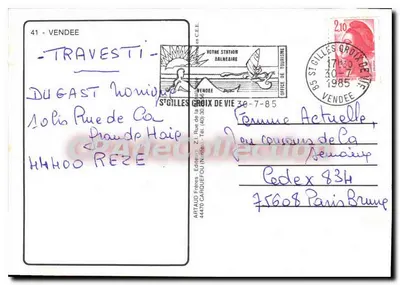 41 - VENDEE
- TRAVESTI -
DUGAST
10 bis Rue de La
Grande Haie
44400 REZE
VOTRE STATION
BALNEAIRE
VENDEE
OFFICE DE TOURISME
ST GILLES CROIX DE VIE 30-7-85
85 ST GILLES CROIX DE VIE
30-7
1985
VENDEE
2,10
ARTAUD Frères - Editeurs
44470 CARQUEFOU
C.E.E.
Femme Actuelle,
Jeu concours de la
Semaine
Cedex 834
75608 Paris Brune